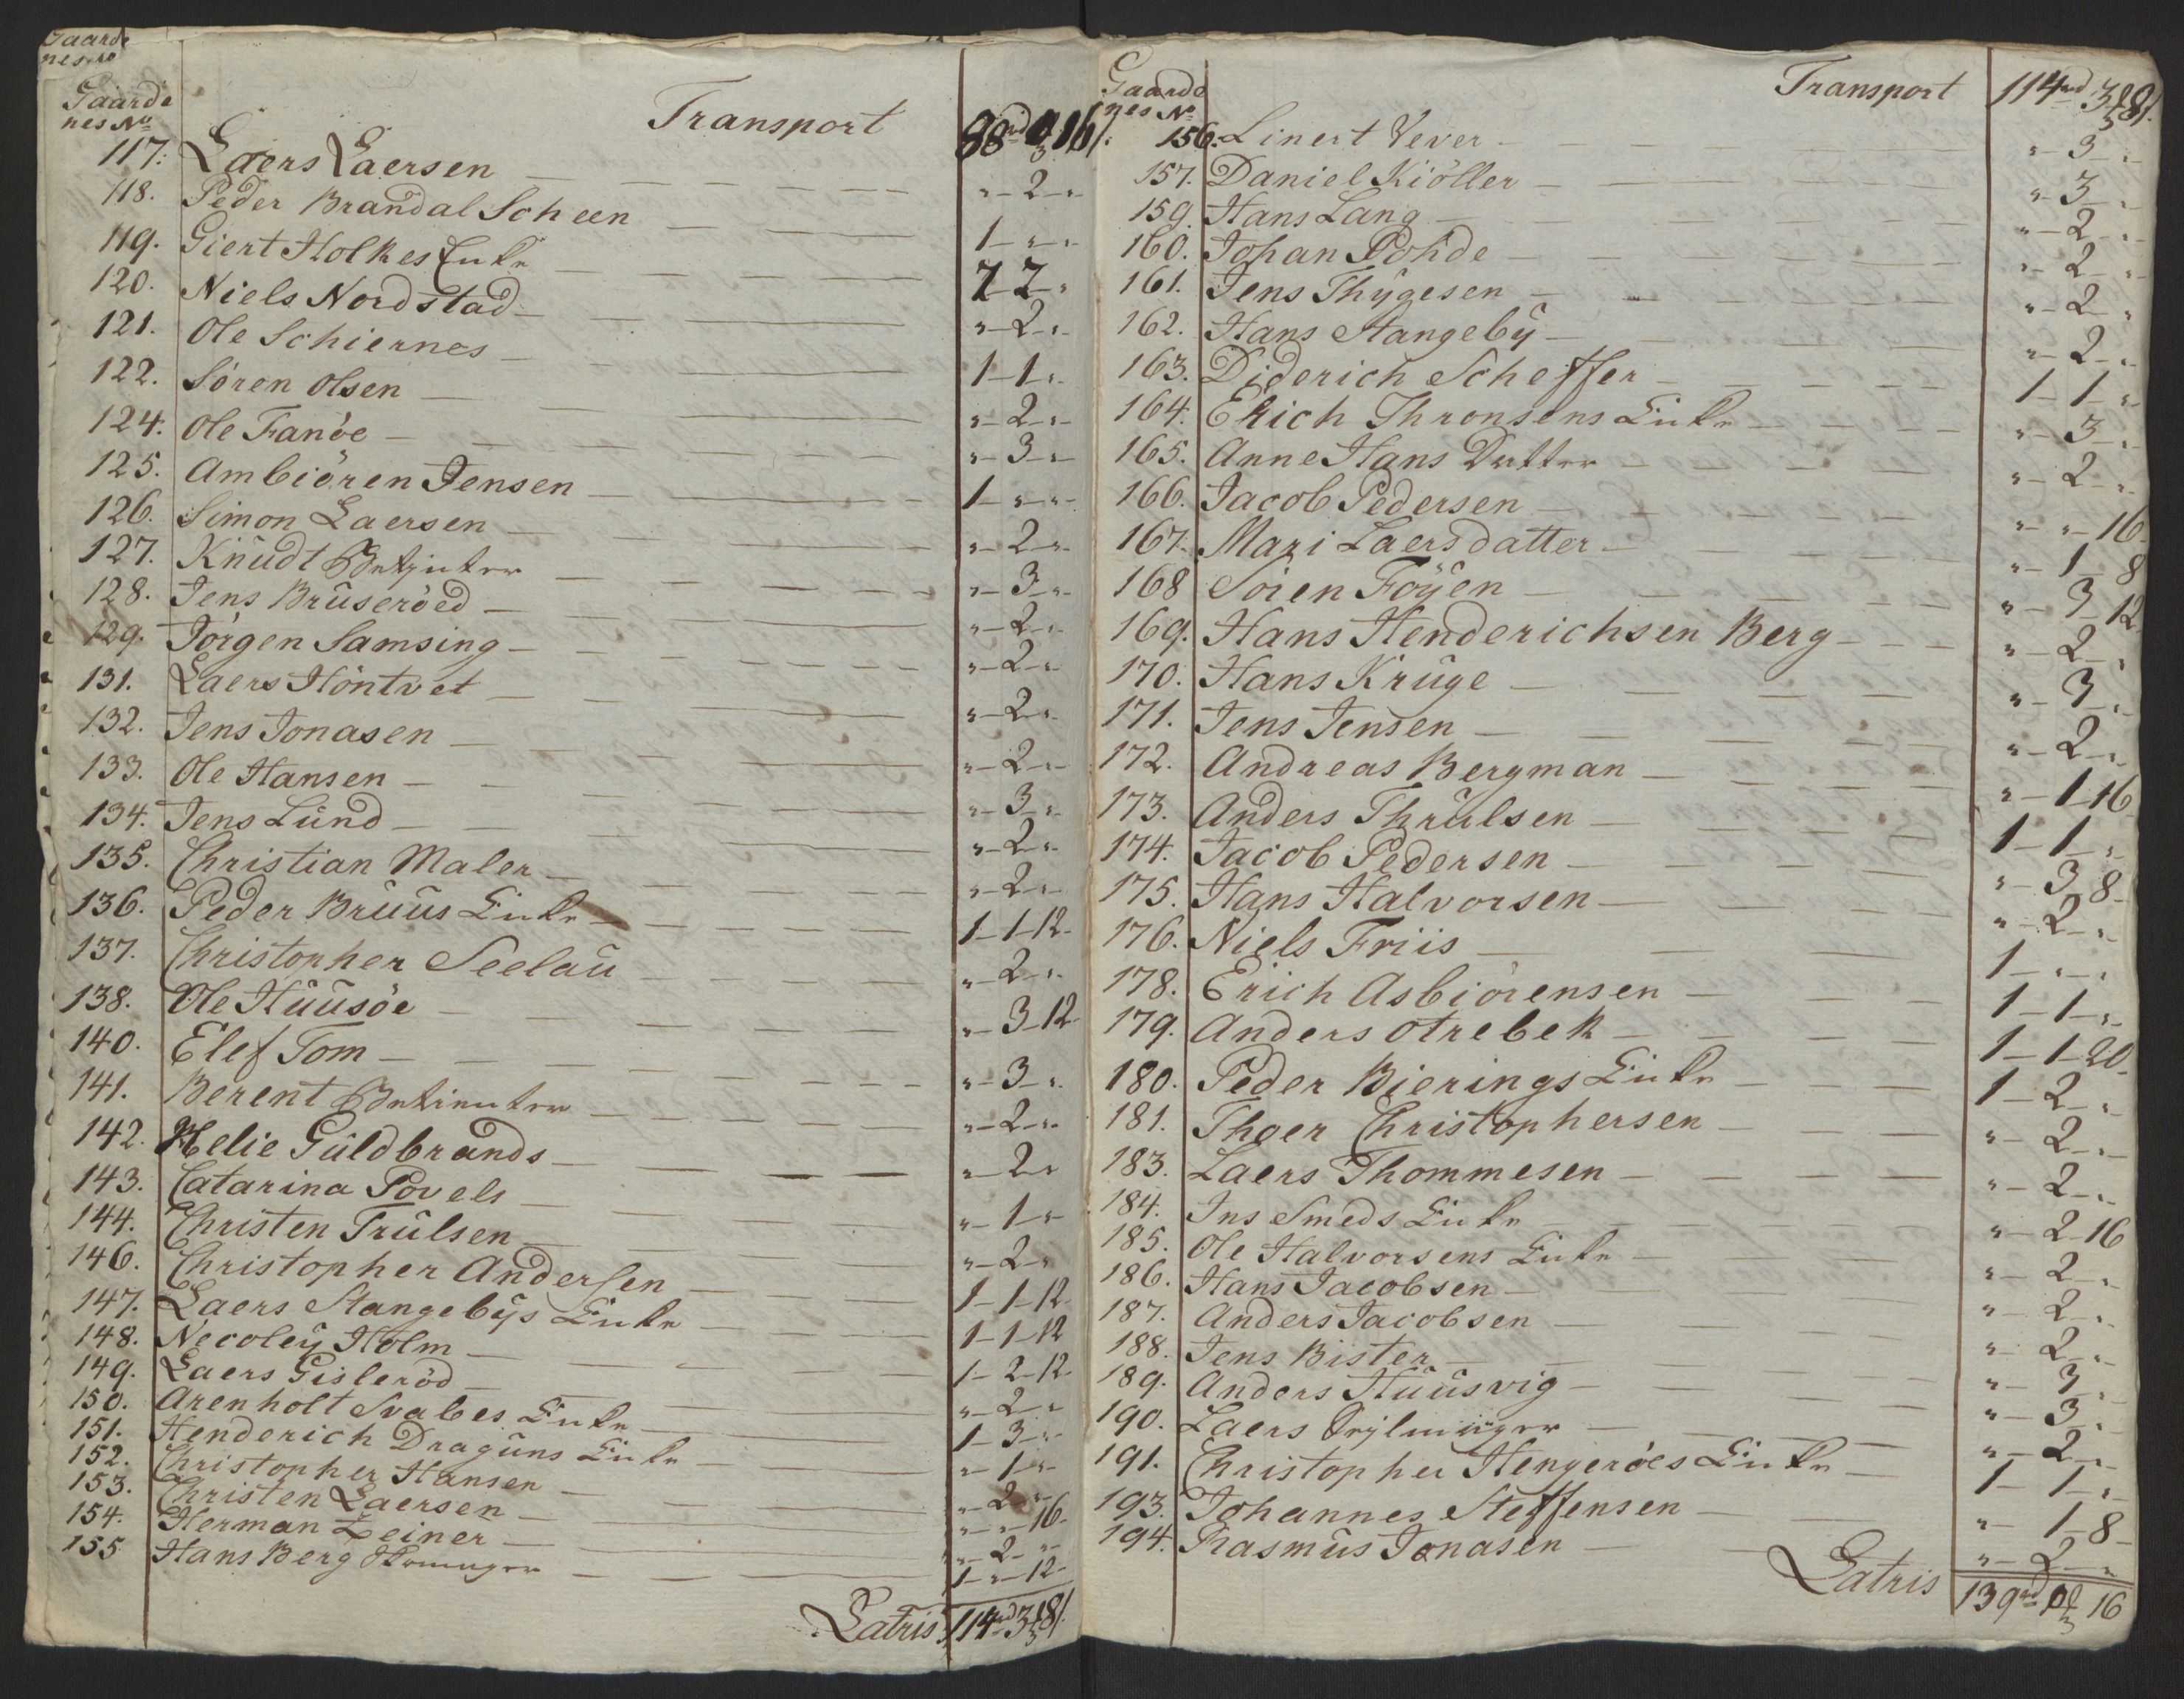 Gaarde
nes No
Gaarde
nes No Transport 88rd 0 16
117. Laers Laersen " 2 "
118. Peder Brandal Scheen 1 " "
119. Giert Holkes Enke 2 2 "
120. Niels Nordstad " 2 "
121. Ole Schiernes 1 1 "
122. Sören Olsen " 2 "
124. Ole Fanöe " 3 "
125. Ambiören Jensen 1 " "
126. Simon Laersen " 2 "
127. Knudt " 3 "
128. Jens Bruseröed " 2 "
129. Jörgen Samsing " 2 "
131. Laers Höntvet " 2 "
132. Jens Jonasen " 2 "
133. Ole Hansen " 3 "
134. Jens Lund " 2 "
135. Christian Maler " 2 "
136. Peder Bruus Enke 1 1 12
137. Christopher Seelau " 2 "
138. Ole Huusöe " 3 12
140. Elef Tom " 3 "
141. Berent " 2 "
142. Helie Guldbrands " 2 "
143. Catarina Povels " 1 "
144. Christen Trulsen " 2 "
146. Christopher Andersen 1 1 12
147. Laers Stangebys Enke 1 1 12
148. Necoley Holm 1 2 12
149. Laers Gisleröd " 2 "
150. Arenholt Svabes Enke 1 3 "
151. Henderich Draguns Enke " 1 "
152. Christopher Hansen " 2 "
153. Christen Laersen " " 16
154. Herman Leiner " 2 "
155 Hans Berg 1 " 12
Latris 114rd 3 8
Gaarde
nes No Transport 114rd 3 8
156. Linert Vever " 3 "
157. Daniel Kiöller " 3 "
159. Hans Lang " 2 "
160. Johan Rohde " 2 "
161. Jens Thygesen " 2 "
162. Hans Stangeby " 2 "
163. Diderich Scheffer 1 1 "
164. Erich Thronsens Enke " 3 "
165. Anne Hans Datter " 2 "
166. Jacob Pedersen " " 16
167. Mari Laersdatter " 1 8
168 Sören Föyen " 3 12
169. Hans Henderichsen Berg " 2 "
170. Hans Kruge " 3 "
171. Jens Jensen " 2 "
172. Andreas Bergman " 1 16
173. Anders Thrulsen 1 1 "
174. Jacob Pedersen " 3 8
175. Hans Halvorsen " 2 "
176. Niels Friis 1 " "
178. Erich Asbiörensen 1 1 "
179. Anders Otrebek 1 1 20
180. Peder Bierings Enke 1 2 "
181. Thoer Christophersen " 2 "
183. Laers Thommesen " 2 "
184. Jns Smeds Enke " 2 16
185. Ole Halvorsens Enke " 2 "
186. Hans Jacobsen " 2 "
187. Anders Jacobsen " 2 "
188. Jens Bister " 3 "
189. Anders Huusvig " 3 "
190. Laers " 2 "
191. Christopher Hengeröes Enke 1 1 "
193. Johannes Steffensen " 1 8
194. Rasmus Jonasen " 2 "
Latris 139rd 0 16